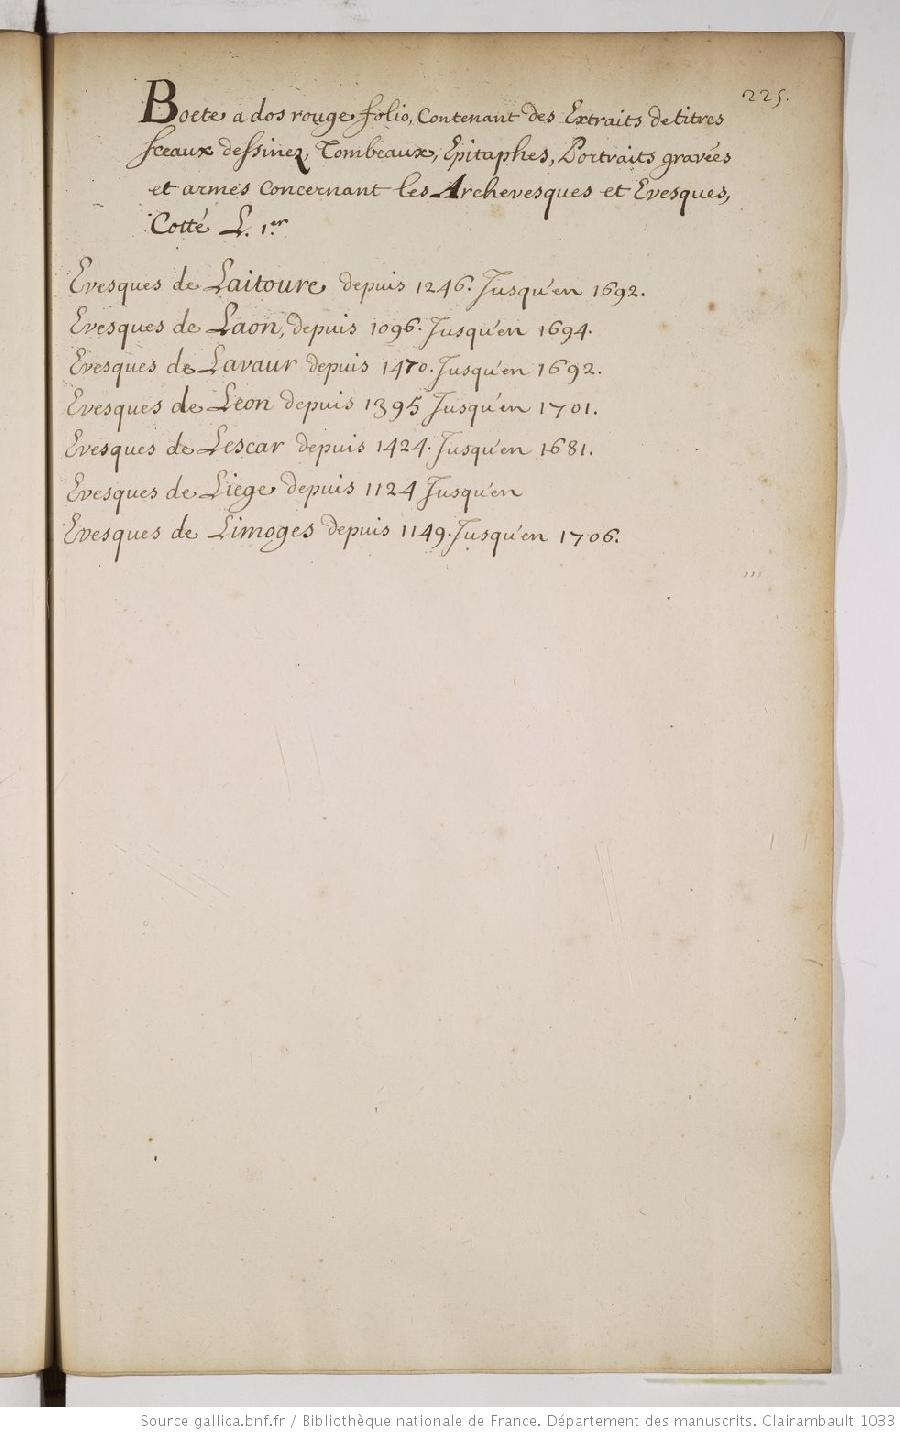 225.
Boete a dos rouge folio, Contenant des Extraits de titres
sceaux dessinez, Tombeaux, Epitaphes, Portraits gravées
et armes Concernant les Archevesques et Evesques,
Cotté L. 1.er
Evesques de Laitoure depuis 1246. Jusqu'en 1692.
Evesques de Laon, depuis 1096. Jusqu'en 1694.
Evesques de Lavaur depuis 1470. Jusqu'en 1692.
Evesques de Leon depuis 1395 Jusqu'en 1701.
Evesques de Lescar depuis 1424. Jusqu'en 1681.
Evesques de Liege depuis 1124 Jusqu'en
Evesques de Limoges depuis 1149. Jusqu'en 1706.
Source gallica.bnf.fr / Bibliothèque nationale de France. Département des manuscrits. Clairambault 1033